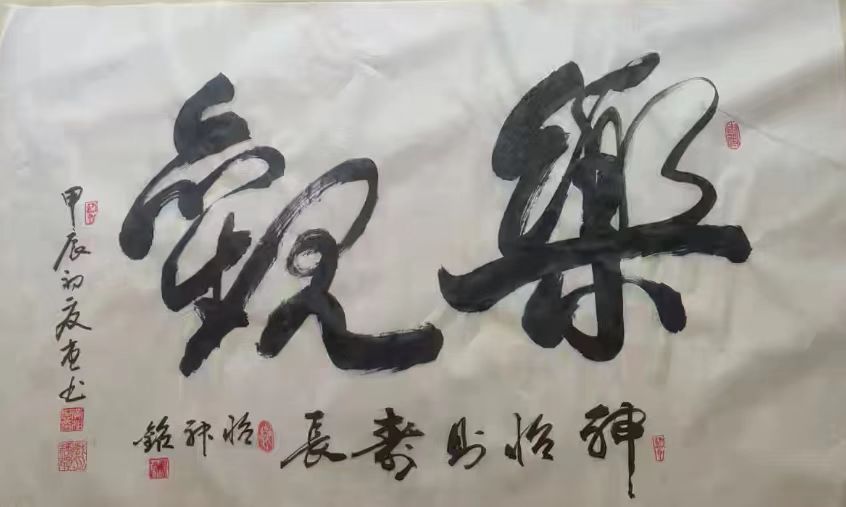 樂觀
神怡則壽長
怡神銘
甲辰初夏 書